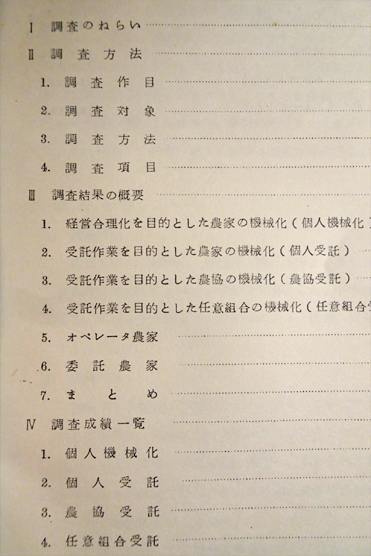 Ⅰ 調査のねらい
Ⅱ 調査方法
1. 調査作目
2. 調査対象
3. 調査方法
4. 調査項目
Ⅲ 調査結果の概要
1. 経営合理化を目的とした農家の機械化(個人機械化)
2. 受託作業を目的とした農家の機械化(個人受託)
3. 受託作業を目的とした農協の機械化(農協受託)
4. 受託作業を目的とした任意組合の機械化(任意組合受
5. オペレータ農家
6. 委託農家
7. まとめ
Ⅳ 調査成績一覧
1. 個人機械化
2. 個人受託
3. 農協受託
4. 任意組合受託